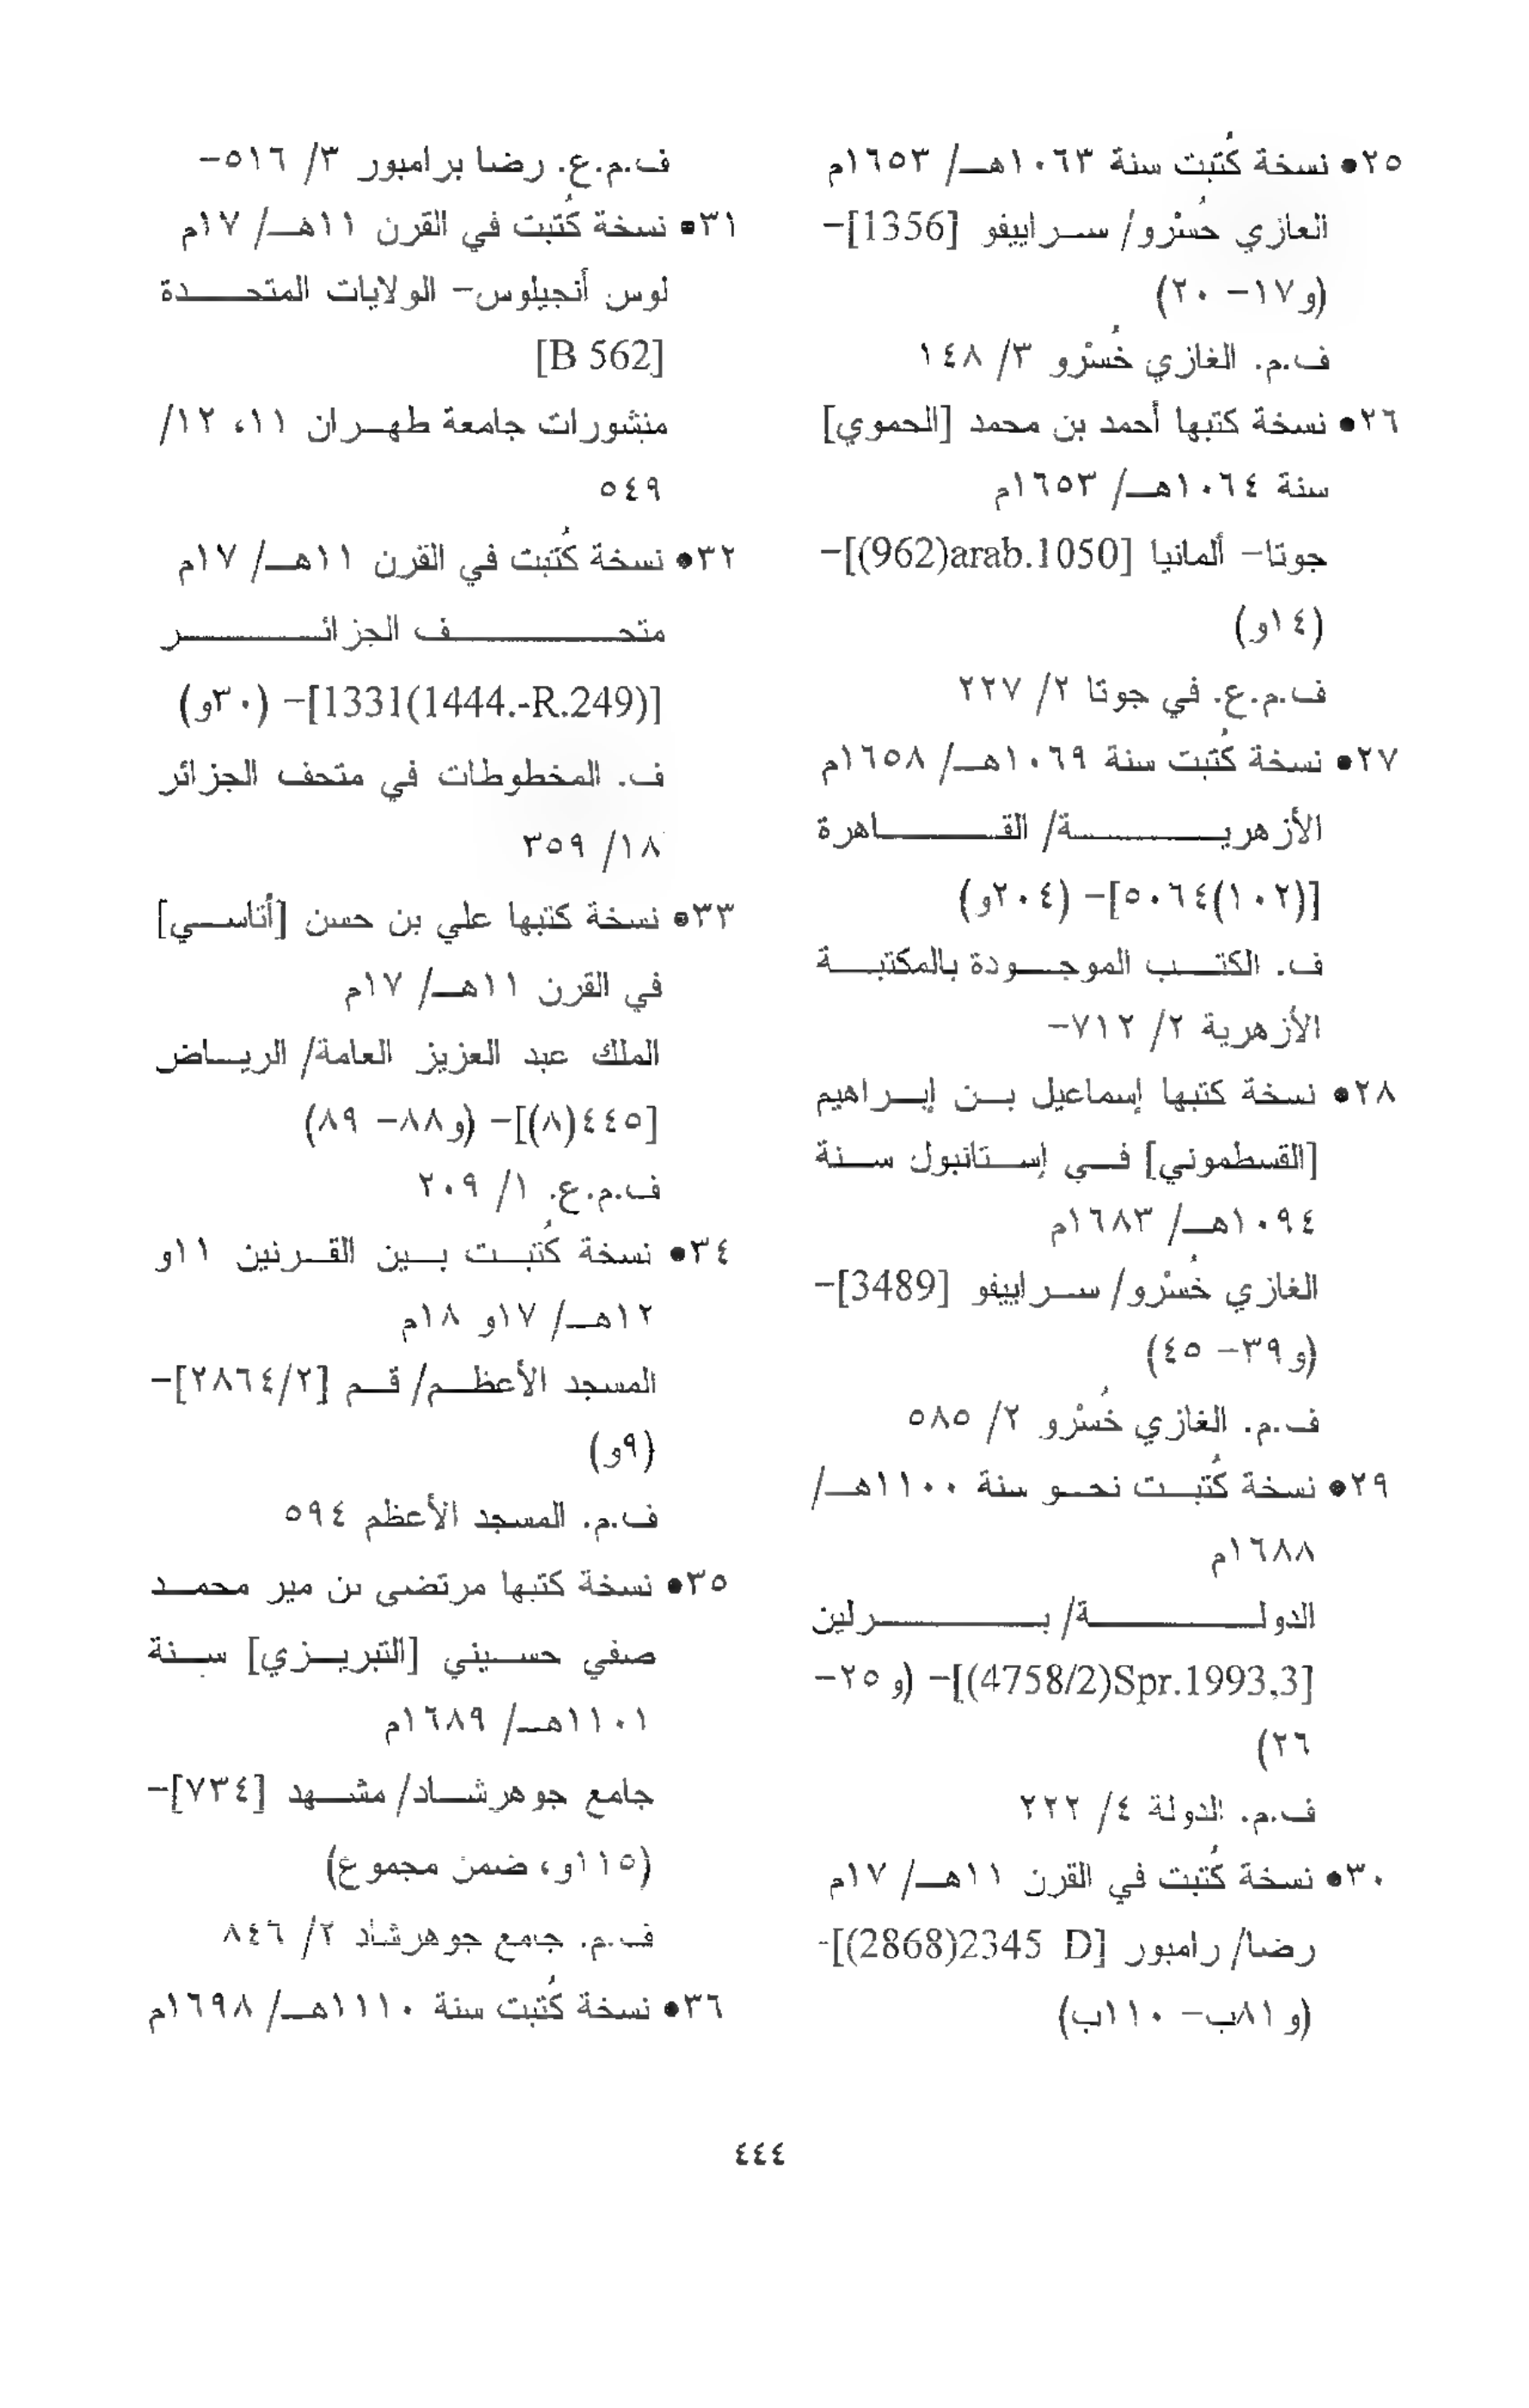 ٢٥• نسخة كُتبت سنة ١٠٦٣هـ/ ١٦٥٣م
الغازي خُسْرو/ سراييفو [1356]-
(و١٧- ٢٠)
ف.م. الغازي خُسْرو ٣/ ١٤٨
٢٦• نسخة كتبها أحمد بن محمد [الحموي]
سنة ١٠٦٤هـ/ ١٦٥٣م
جوتا- ألمانيا [arab.1050(962)]-
(١٤و)
ف.م.ع. في جوتا ٢/ ٢٢٧
٢٧• نسخة كُتبت سنة ١٠٦٩هـ/ ١٦٥٨م
الأزهرية/ القاهرة
[(١٠٢)٥٠٦٤]- (٢٠٤و)
ف. الكتب الموجودة بالمكتبة
الأزهرية ٢/ ٧١٢-
٢٨• نسخة كتبها إسماعيل بن إبراهيم
[القسطموني] في إستانبول سنة
١٠٩٤هـ/ ١٦٨٣م
الغازي خُسْرو/ سراييفو [3489]-
(و٣٩- ٤٥)
ف.م. الغازي خُسْرو ٢/ ٥٨٥
٢٩• نسخة كُتبت نحو سنة ١١٠٠هـ/
١٦٨٨م
الدولة/ برلين
[Spr.1993,3(4758/2)]- (و ٢٥-
٢٦)
ف.م. الدولة ٤/ ٢٢٢
٣٠• نسخة كُتبت في القرن ١١هـ/ ١٧م
رضا/ رامبور [2345 D(2868)]-
(و ٨١ب- ١١٠ب)
ف.م.ع. رضا برامبور ٣/ ٥١٦-
٣١• نسخة كُتبت في القرن ١١هـ/ ١٧م
لوس أنجيلوس- الولايات المتحدة
[B 562]
منشورات جامعة طهران ١١، ١٢/
٥٤٩
٣٢• نسخة كُتبت في القرن ١١هـ/ ١٧م
متحف الجزائر
[1331(1444.-R.249)]- (٣٠و)
ف. المخطوطات في متحف الجزائر
١٨/ ٣٥٩
٣٣• نسخة كتبها علي بن حسن [أتاسي]
في القرن ١١هـ/ ١٧م
الملك عبد العزيز العامة/ الرياض
[٤٤٥(٨)]- (و٨٨- ٨٩)
ف.م.ع. ١/ ٢٠٩
٣٤• نسخة كُتبت بين القرنين ١١و
١٢هـ/ ١٧و ١٨م
المسجد الأعظم/ قم [٢٨٦٤/٢]-
(٩و)
ف.م. المسجد الأعظم ٥٩٤
٣٥• نسخة كتبها مرتضى بن مير محمد
صفي حسيني [التبريزي] سنة
١١٠١هـ/ ١٦٨٩م
جامع جوهرشاد/ مشهد [٧٣٤]-
(١١٥و، ضمن مجموع)
ف.م. جامع جوهرشاد ٢/ ٨٤٦
٣٦• نسخة كُتبت سنة ١١١٠هـ/ ١٦٩٨م
٤٤٤